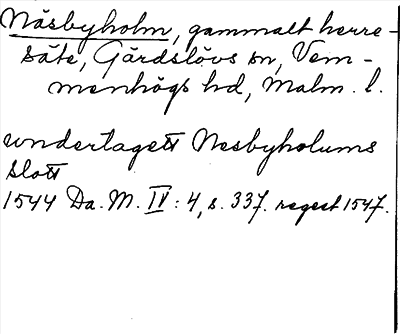 Näsbyholm, gammalt herre-
säte, Gärdslövs sn, Vem-
menhögs hd, Malm. l.
undertagett Nesbyholums
slott
1544 Da. M. IV: 4, s. 337. regest 1547.